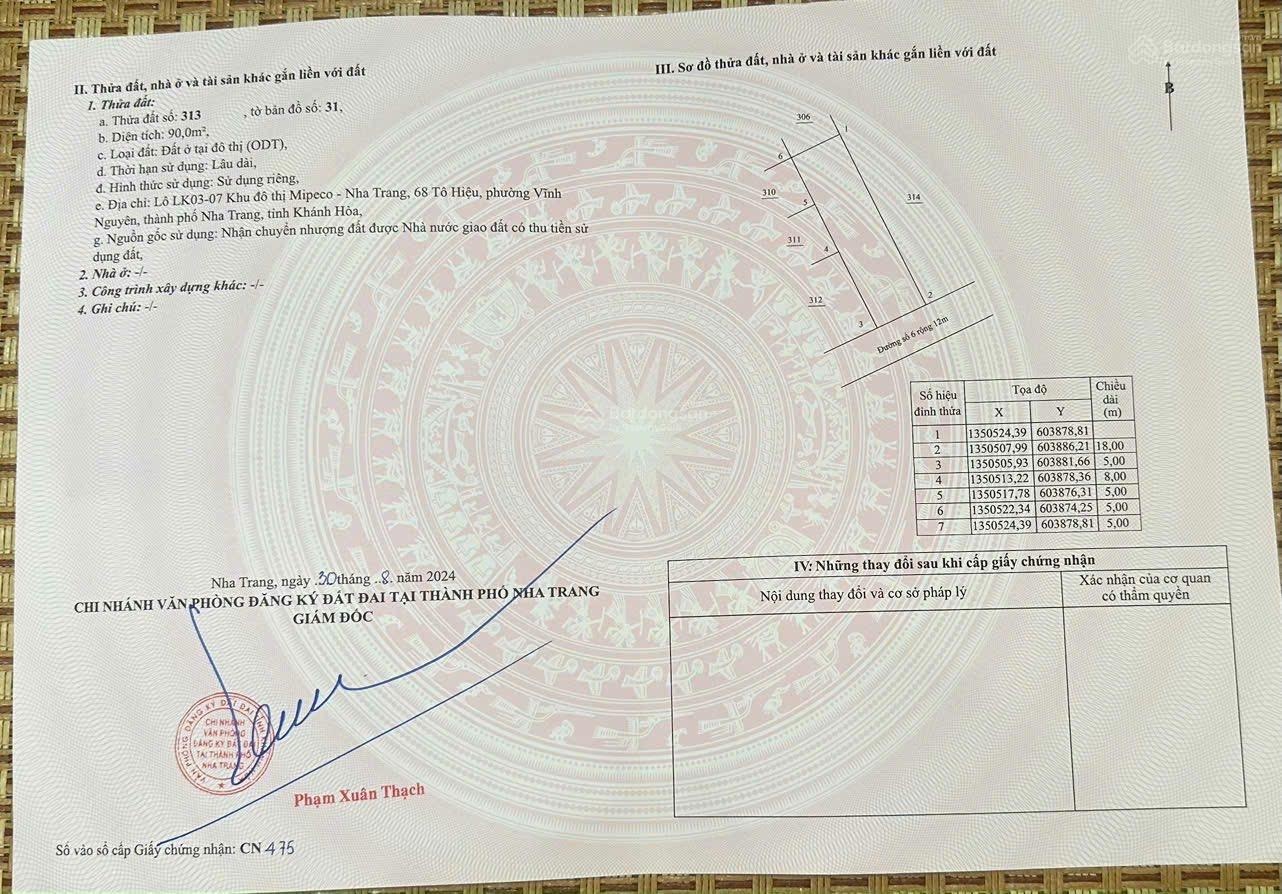 II. Thửa đất, nhà ở và tài sản khác gắn liền với đất
1. Thửa đất:
a. Thửa đất số: 313 , tờ bản đồ số: 31,
b. Diện tích: 90,0m²,
c. Loại đất: Đất ở tại đô thị (ODT),
d. Thời hạn sử dụng: Lâu dài,
đ. Hình thức sử dụng: Sử dụng riêng,
e. Địa chỉ: Lô LK03-07 Khu đô thị Mipeco - Nha Trang, 68 Tô Hiệu, phường Vĩnh
Nguyên, thành phố Nha Trang, tỉnh Khánh Hòa,
g. Nguồn gốc sử dụng: Nhận chuyển nhượng đất được Nhà nước giao đất có thu tiền sử
dụng đất,
2. Nhà ở: -/-
3. Công trình xây dựng khác: -/-
4. Ghi chú: -/-
Nha Trang, ngày 30 tháng 8. năm 2024
CHI NHÁNH VĂN PHÒNG ĐĂNG KÝ ĐẤT ĐAI TẠI THÀNH PHỐ NHA TRANG
GIÁM ĐỐC
CHI NHÁNH
VĂN PHÒNG
ĐĂNG KÝ ĐẤT ĐAI
TẠI THÀNH PHỐ
NHA TRANG
Phạm Xuân Thạch
Số vào sổ cấp Giấy chứng nhận: CN 475
III. Sơ đồ thửa đất, nhà ở và tài sản khác gắn liền với đất
Batdongsan
B
306
1
6
310
314
5
311
4
312
2
3
Đường số 6 rộng 12m
Số hiệu đỉnh thửa Tọa độ Chiều dài (m)
X Y
1 1350524,39 603878,81
2 1350507,99 603886,21 18,00
3 1350505,93 603881,66 5,00
4 1350513,22 603878,36 8,00
5 1350517,78 603876,31 5,00
6 1350522,34 603874,25 5,00
7 1350524,39 603878,81 5,00
Batdongsan
IV: Những thay đổi sau khi cấp giấy chứng nhận
Nội dung thay đổi và cơ sở pháp lý
Xác nhận của cơ quan
có thẩm quyền